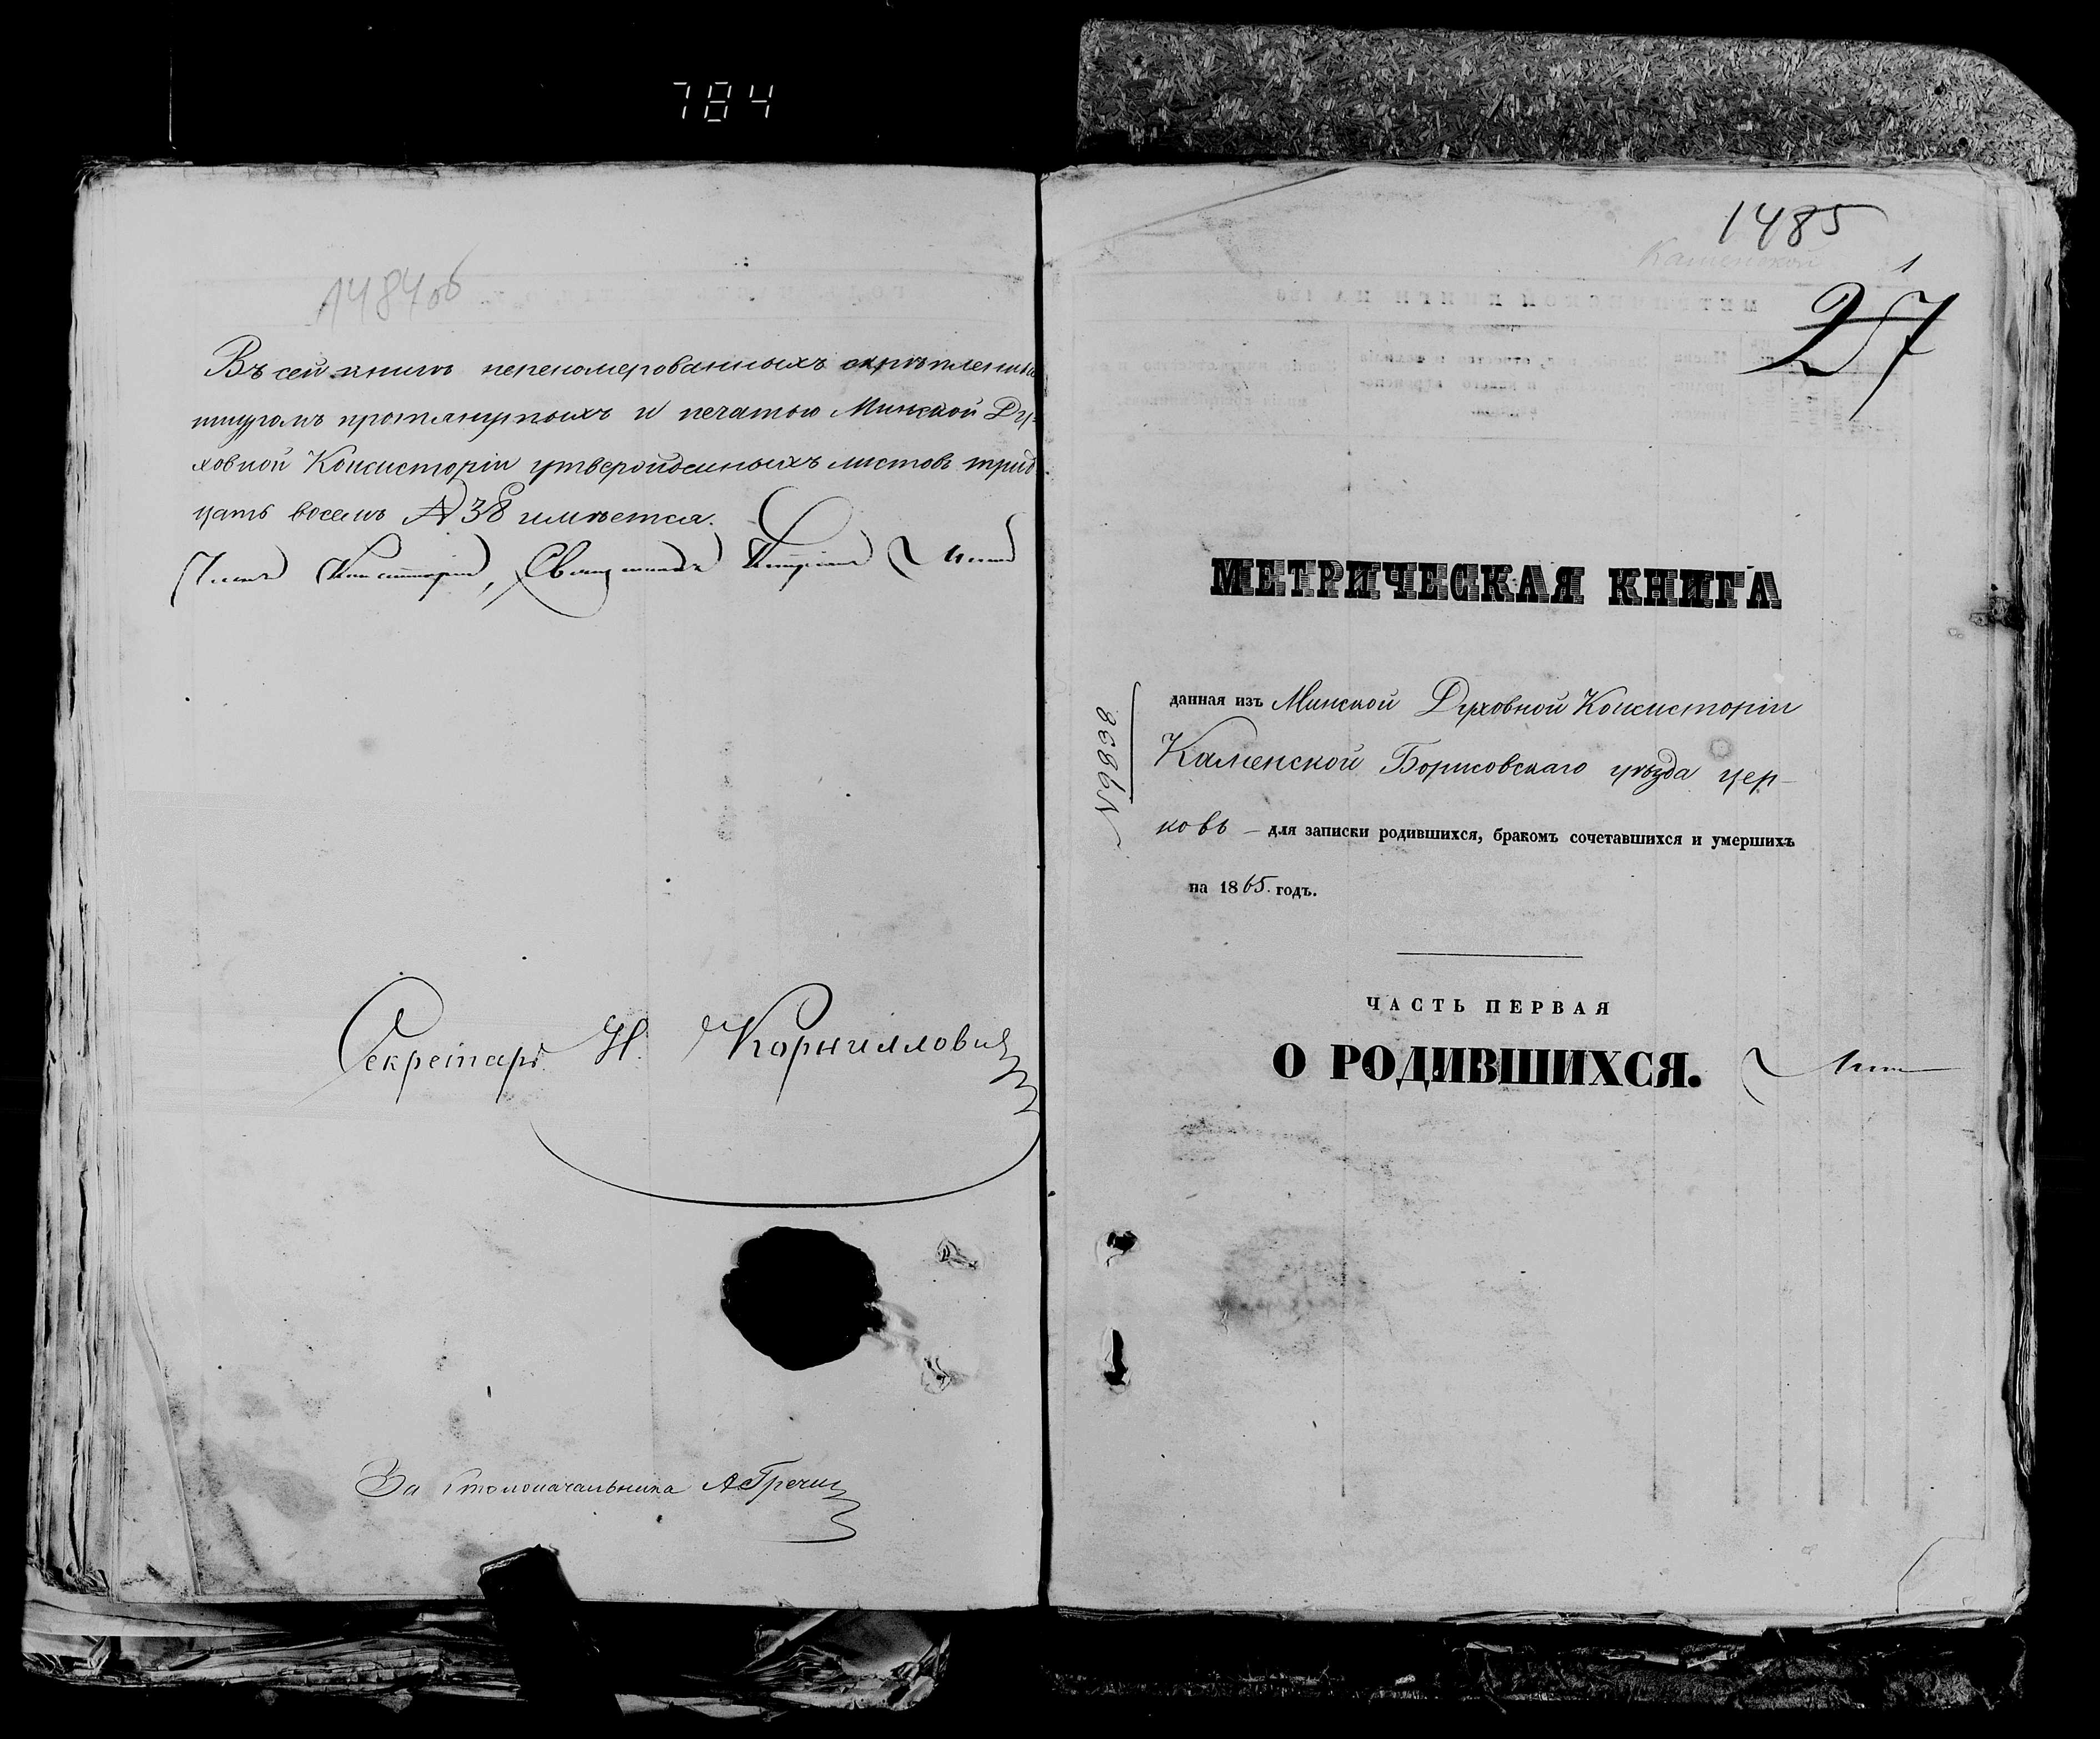 784
1484об
Въ сей книгѣ переномерованныхъ скрѣпленныхъ
шнуромъ протянутыхъ и печатью Минской Ду-
ховной Консисторіи утвержденныхъ листовъ трид
цать восемь № 38 имѣется.
Членъ Консисторіи, Священникъ
Секретарь Н. Корниллович
За Столоначальника А Гречи
1485
Каменской
1
27
МЕТРИЧЕСКАЯ КНИГА
данная изъ Минской Духовной Консисторіи
Каменской Борисовскаго уѣзда цер-
ковь — для записки родившихся, бракомъ сочетавшихся и умершихъ
на 1865. годъ.
№ 9838
ЧАСТЬ ПЕРВАЯ
О РОДИВШИХСЯ.